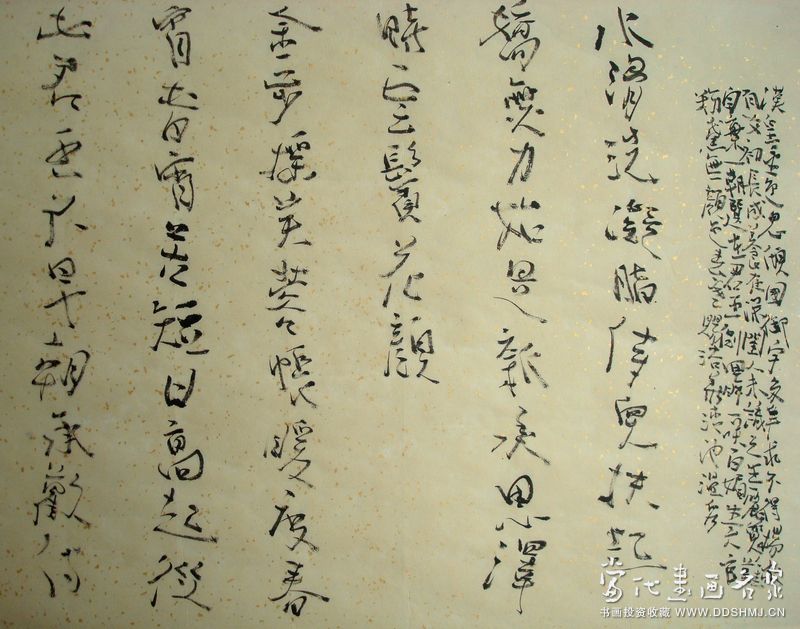 漢皇重色思傾國御宇多年求不得楊家
有女初長成養在深閨人未識天生麗質難
自棄一朝選在君王側回眸一笑百媚生六宮
粉黛無顏色春寒賜浴華清池溫泉
水滑洗凝脂侍兒扶起
嬌無力始是新承恩澤
時雲鬢花顏
金步搖芙蓉帳暖度春
宵春宵苦短日高起從
此君王不早朝承歡侍
當代書畫名家
书画投资收藏 WWW.DDSHMJ.CN